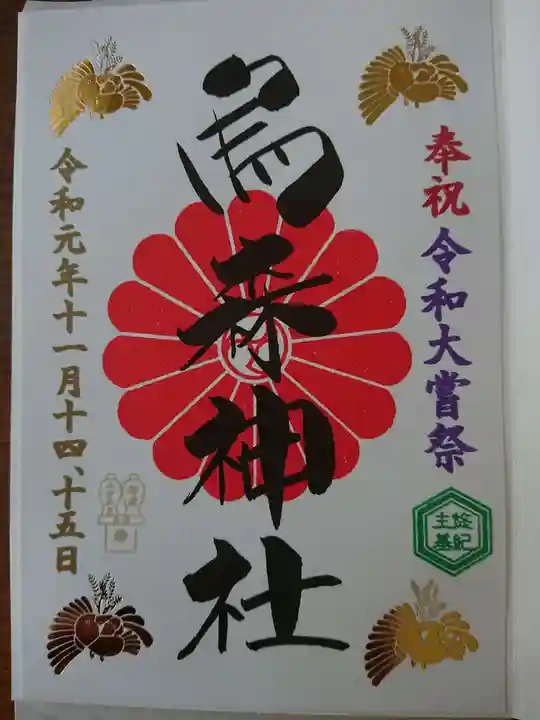 奉祝 令和大嘗祭
烏森神社
令和元年十一月十四、十五日
悠紀
主基